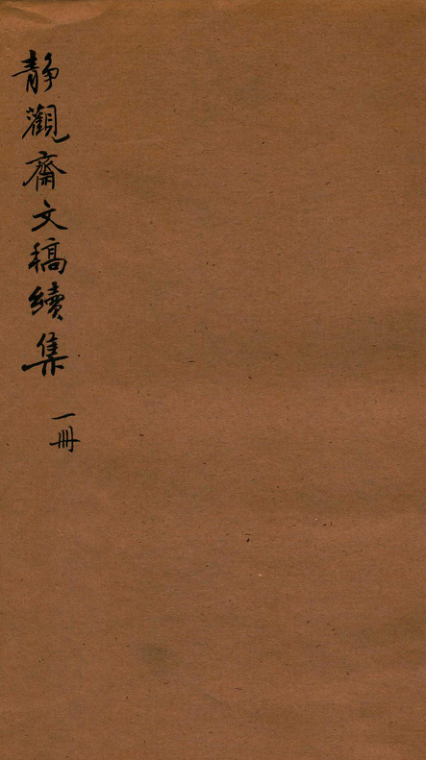 静觀齋文稿續集
一冊